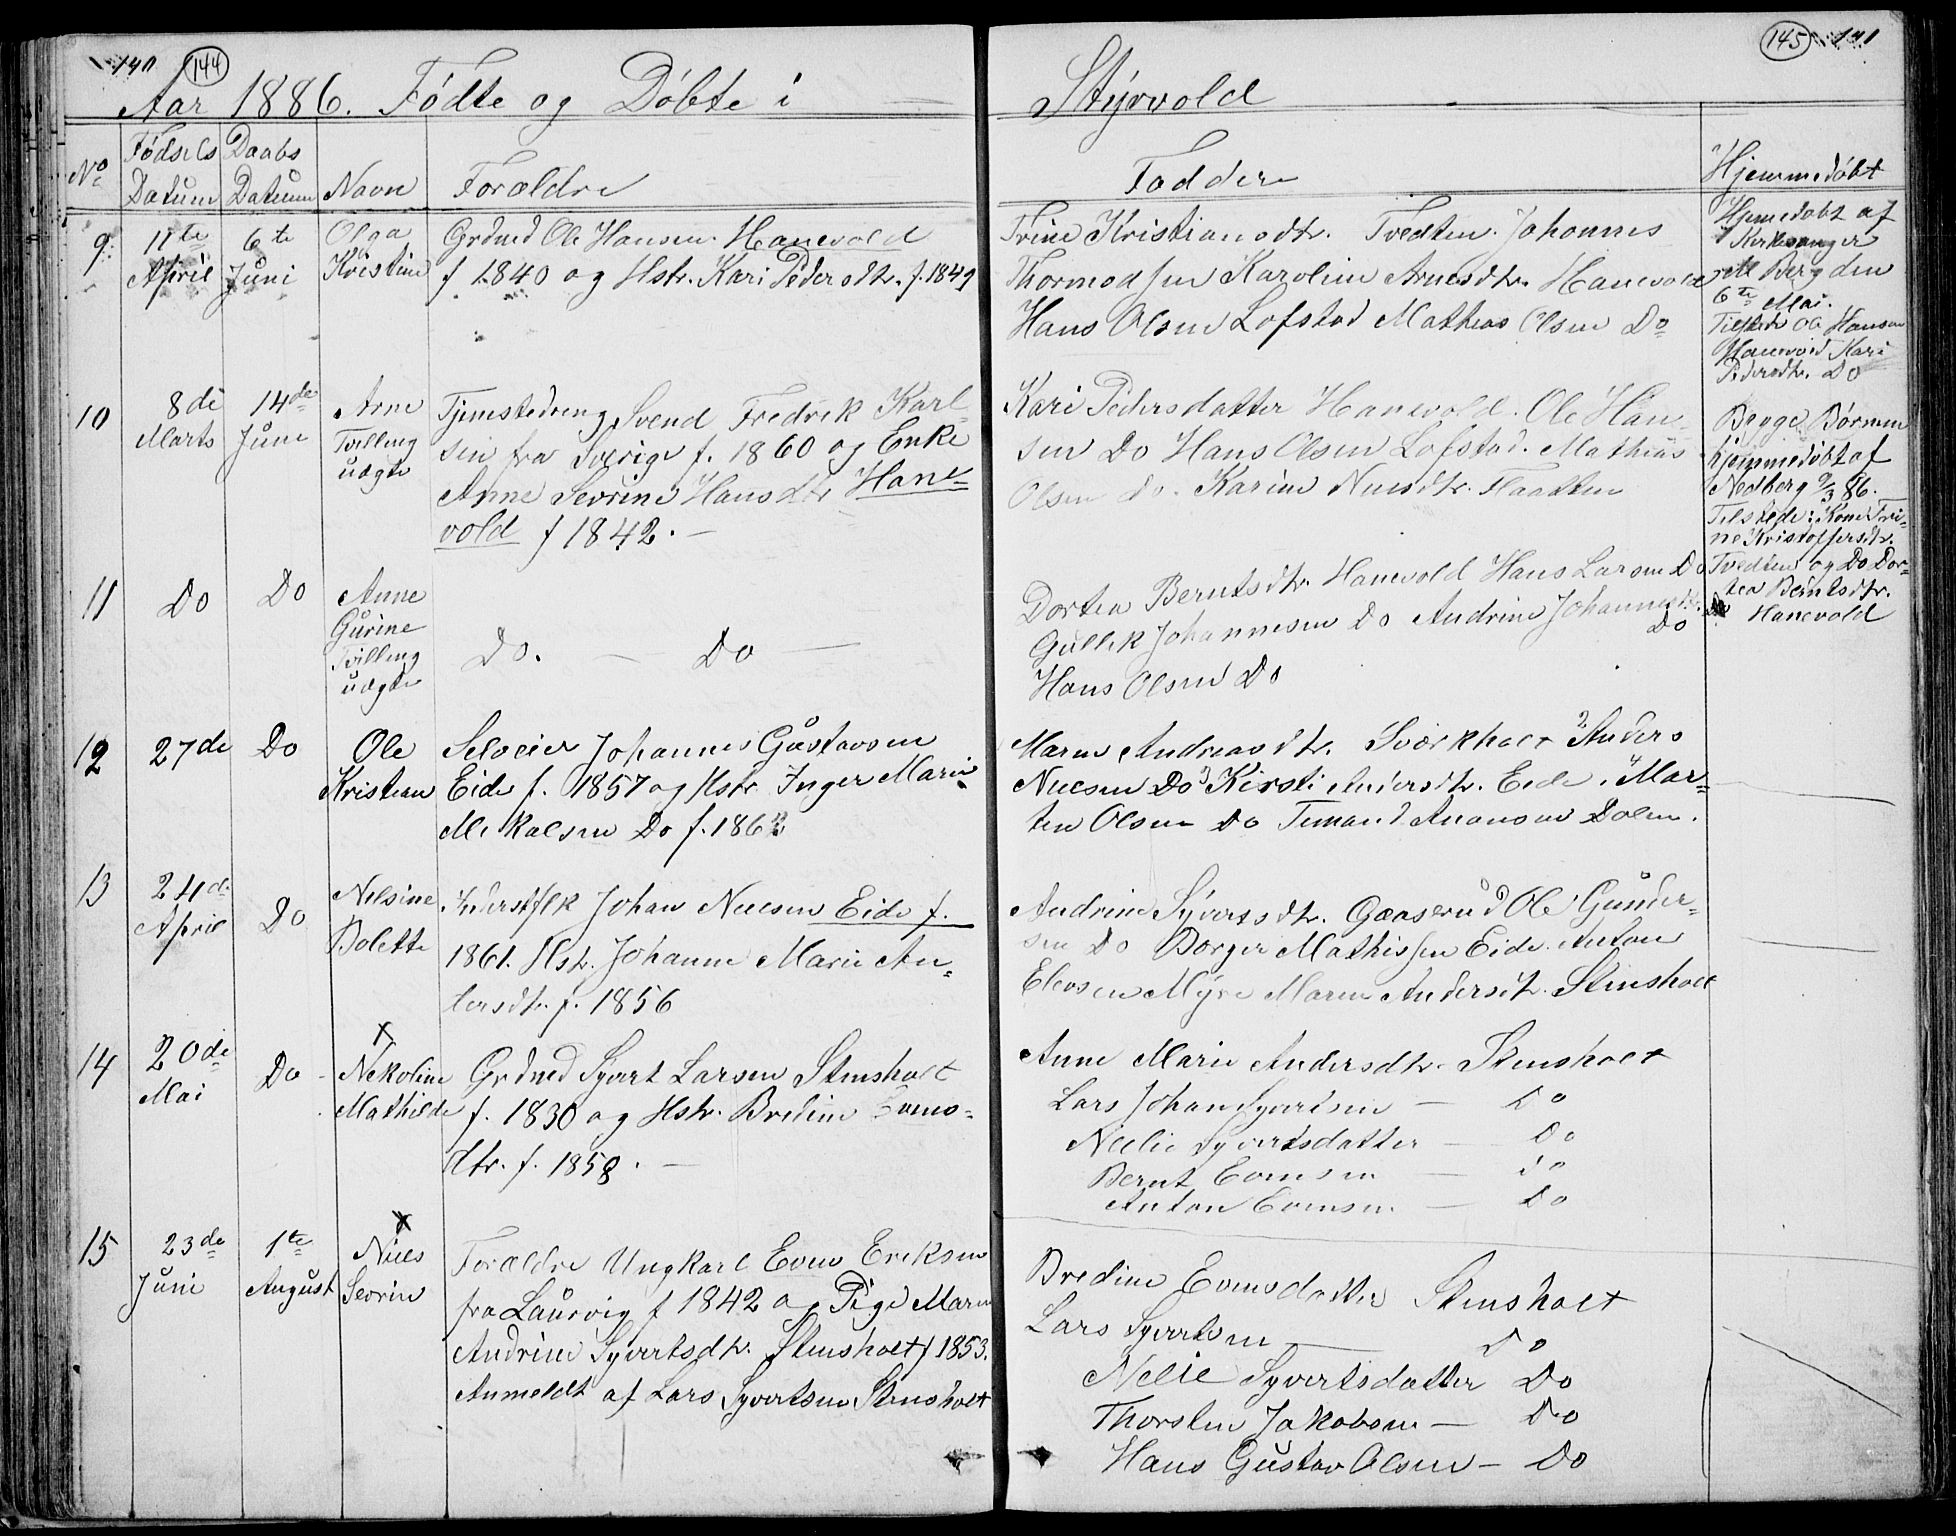 140 144
Aar 1886. Födte og Döbte i Styrvold
145 141
No Födsels Datum Daabs Datum Navn Forældre Faddere Hjemmedöbt
9. 11te April 6te Juni Olga Kristine
Grdmd Ole Hansen Hanevold
f 1840 og Hstr. Kari Pedersdtr. f. 1849
Trine Kristiansdtr. Tvedten. Johannes
Thormodsen Karoline Arnesdtr. Hanevold
Hans Olsen Lofstad Mathias Olsen Do
Hjemedöbt af
Kirkesanger
Berg den
6te Mai.
Tilstede Ole Hansen
Hanevold Kari
Pedersdtr. Do
10 8de Marts 14de Juni Arne Tvilling uægte
Tjenestedreng Svend Fredrek Karl=
sen fra Sverige f. 1860 og Enke
Anne Sevrine Hansdtr Hane=
vold f 1842. –
Kari Pedersdatter Hanevold. Ole Han=
sen Do Hans Olsen Lofstad. Mathias
Olsen Do. Karine Nilsdtr. Flaatten
Begge Börnene
hjemmedöbt af
Nedberg 9/3 86.
Tilstede: Kone Tri=
ne Kristoffersdtr.
Tvedten og Do Dor=
tea Berntsdtr.
Hanevold
11 Do Do Anne Gurine Tvilling uægte
Do. — Do —
Dortea Berntsdtr Hanevold Hans Larsen Do
Gullek Johannesen Do Andrine Johannesdtr.
Do
Hans Olsen Do
12 27de Do Ole Kristian
Selveier Johannes Gustavsen
Eide f. 1857 og Hstr. Inger Marie
Mikalsen Do f. 186
Maren Andreasdtr. Sværkholt 2 Anders
Nilsen Do 3 Kirsti Andersdtr. Eide. 4 Mar=
ten Olsen Do Dolen.
13 24de April Do Nilsine Bolette
Inderstflk Johan Nilsen Eide f.
1861. Hstr. Johanne Marie An=
dersdtr. f. 1856
Andrine Syversdtr. Gaaserud Ole Gunder=
sen Do Borger Mathissen Eide. Anton
Elevsen Myre Maren Andersdtr. Stensholt
14 20de Mai Do x Nekoline Mathilde
Grdmd Syvert Larsen Stensholt
f. 1830 og Hstr. Bredine Evens=
dtr. f. 1858. —
Anne Marie Andersdtr. Stensholt
Lars Johan Syvertsen — Do
Nilie Syvertsdatter — Do
Bernt Evensen — Do
Anton Evensen — Do
15 23de Juni 1te August x Niels Sevrin
Forældre Ungkarl Even Eriksen
fra Laurvig f 1842 og Pige Maren
Andrine Syvertsdtr. Stensholt f 1853.
Anmeldt af Lars Syvertsen Stensholt
Bredine Evensdatter Stensholt
Lars Syvertsen — Do
Nelie Syvertsdatter Do
Thorsten Jakobsen — Do
Hans Gustav Olsen – Do